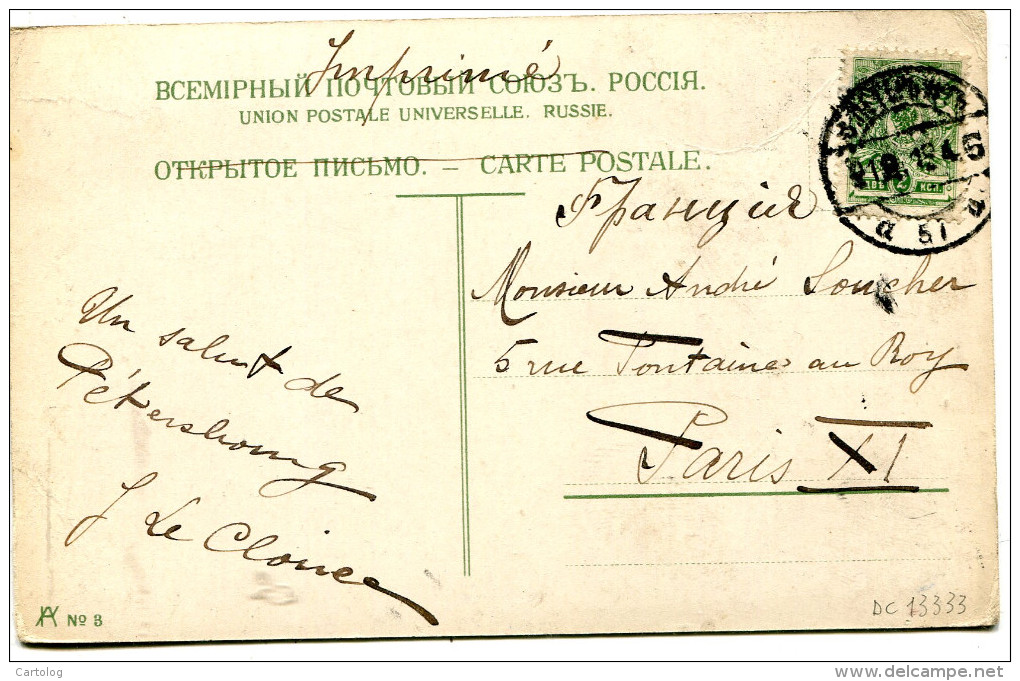 Imprimé
ВСЕМІРНЫЙ ПОЧТОВЫЙ СОЮЗЪ. РОССІЯ.
UNION POSTALE UNIVERSELLE. RUSSIE.
ОТКРЫТОЕ ПИСЬМО. – CARTE POSTALE.
Франція
Monsieur André Soucher
5 rue Fontaine au Roy
Paris XI
Un salut de
Pétersbourg
J Le Cloirec
КОП.
51
№ 3
DC 13333
Cartolog
www.delcampe.net